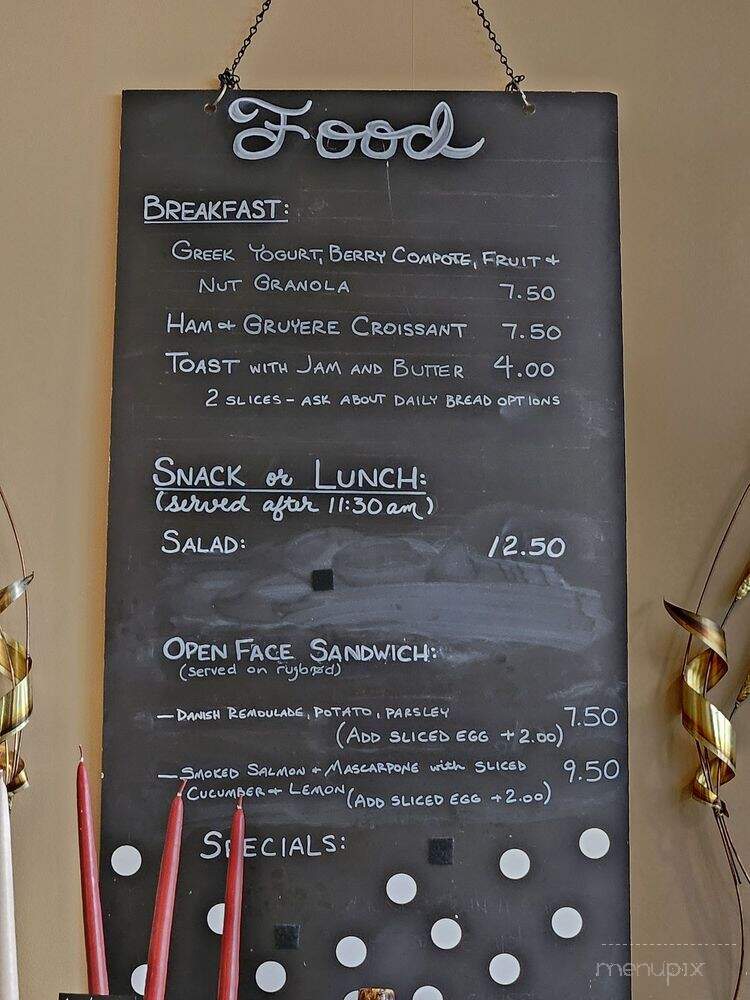 Food
BREAKFAST:
GREEK YOGURT, BERRY COMPOTE, FRUIT +
NUT GRANOLA 7.50
HAM + GRUYERE CROISSANT 7.50
TOAST WITH JAM AND BUTTER 4.00
2 SLICES - ASK ABOUT DAILY BREAD OPTIONS
SNACK or LUNCH:
(served after 11:30am)
SALAD: 12.50
OPEN FACE SANDWICH:
(served on rugbrød)
- DANISH REMOULADE, POTATO, PARSLEY 7.50
(ADD SLICED EGG +2.00)
- SMOKED SALMON + MASCARPONE with SLICED 9.50
CUCUMBER + LEMON (ADD SLICED EGG +2.00)
SPECIALS:
menupix